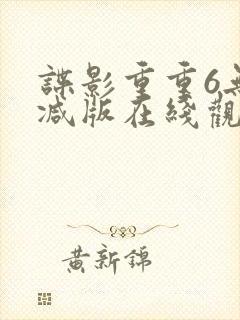 諜影重重6無
減版在綫觀
黃新錦